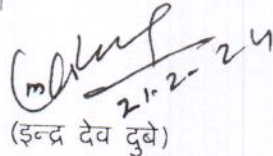 21.2.24
(इन्द्र देव दुबे)